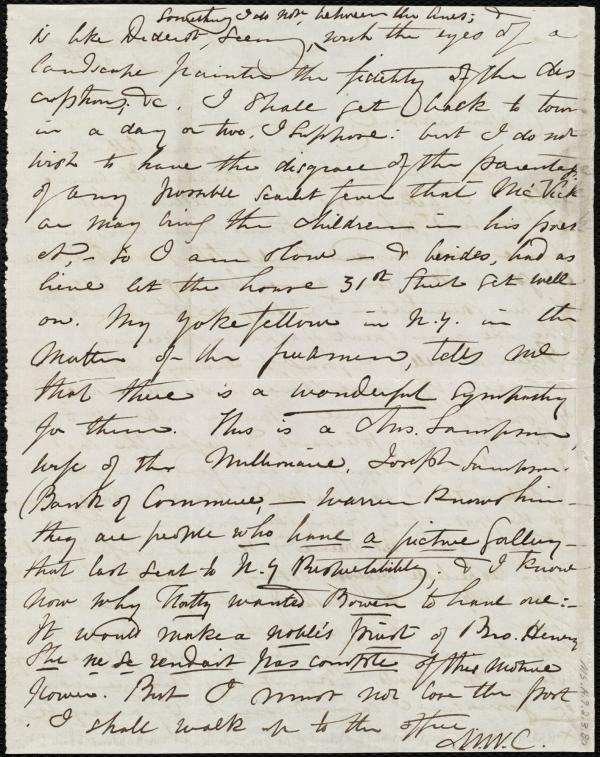 Something I do not, between the lines; &
is like Diderot, seeing, with the eyes of a
landscape painter the fidelity of the des
criptions; &c. I shall get back to town
in a day or two, I suppose: but I do not
wish to have the disgrace of the parentage
of any possible scarlet fever that McVick
ar may bring the children in his pock
et, - so I am slow - & besides, had as
lieve let the house 31st Street get well
on. My yokefellow in N.Y. in the
matter of the freedmen, tells me
that there is a wonderful sympathy
for them. This is a Mrs. Sampson,
wife of the Millionaire, Joseph Sampson.
(Bank of Commerce, - Warren knows him -
they are people who have a picture Gallery -
that last seat to N.Y Respectability; & I know
now why Natty wanted Bowen to have one: -
It would make a noble's priest of Bro. Henry
She ne se rendait pas compte of the motive
power. But I must not lose the post
. I shall walk up to the office
MS.A.9.2.3